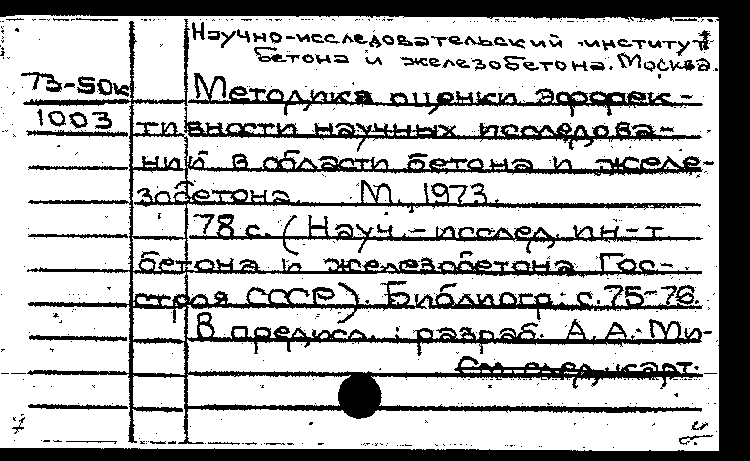 Научно-исследовательский институт
бетона и железобетона. Москва.
73-50к Методика оценки эффек-
1003 тивности научных исследова-
ний в области бетона и желе-
зобетона. М., 1973.
78 с. (Науч.-исслед. ин-т
бетона и железобетона Гос-
строя СССР). Библиогр.: с. 75-76.
В предисл.: разраб. А. А. Ми-
См. след. карт.